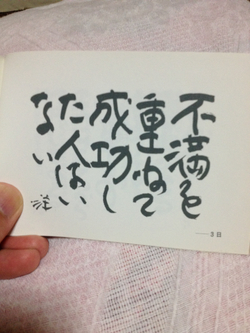 不満を
重ねて
成功し
た人はい
ない
——3日